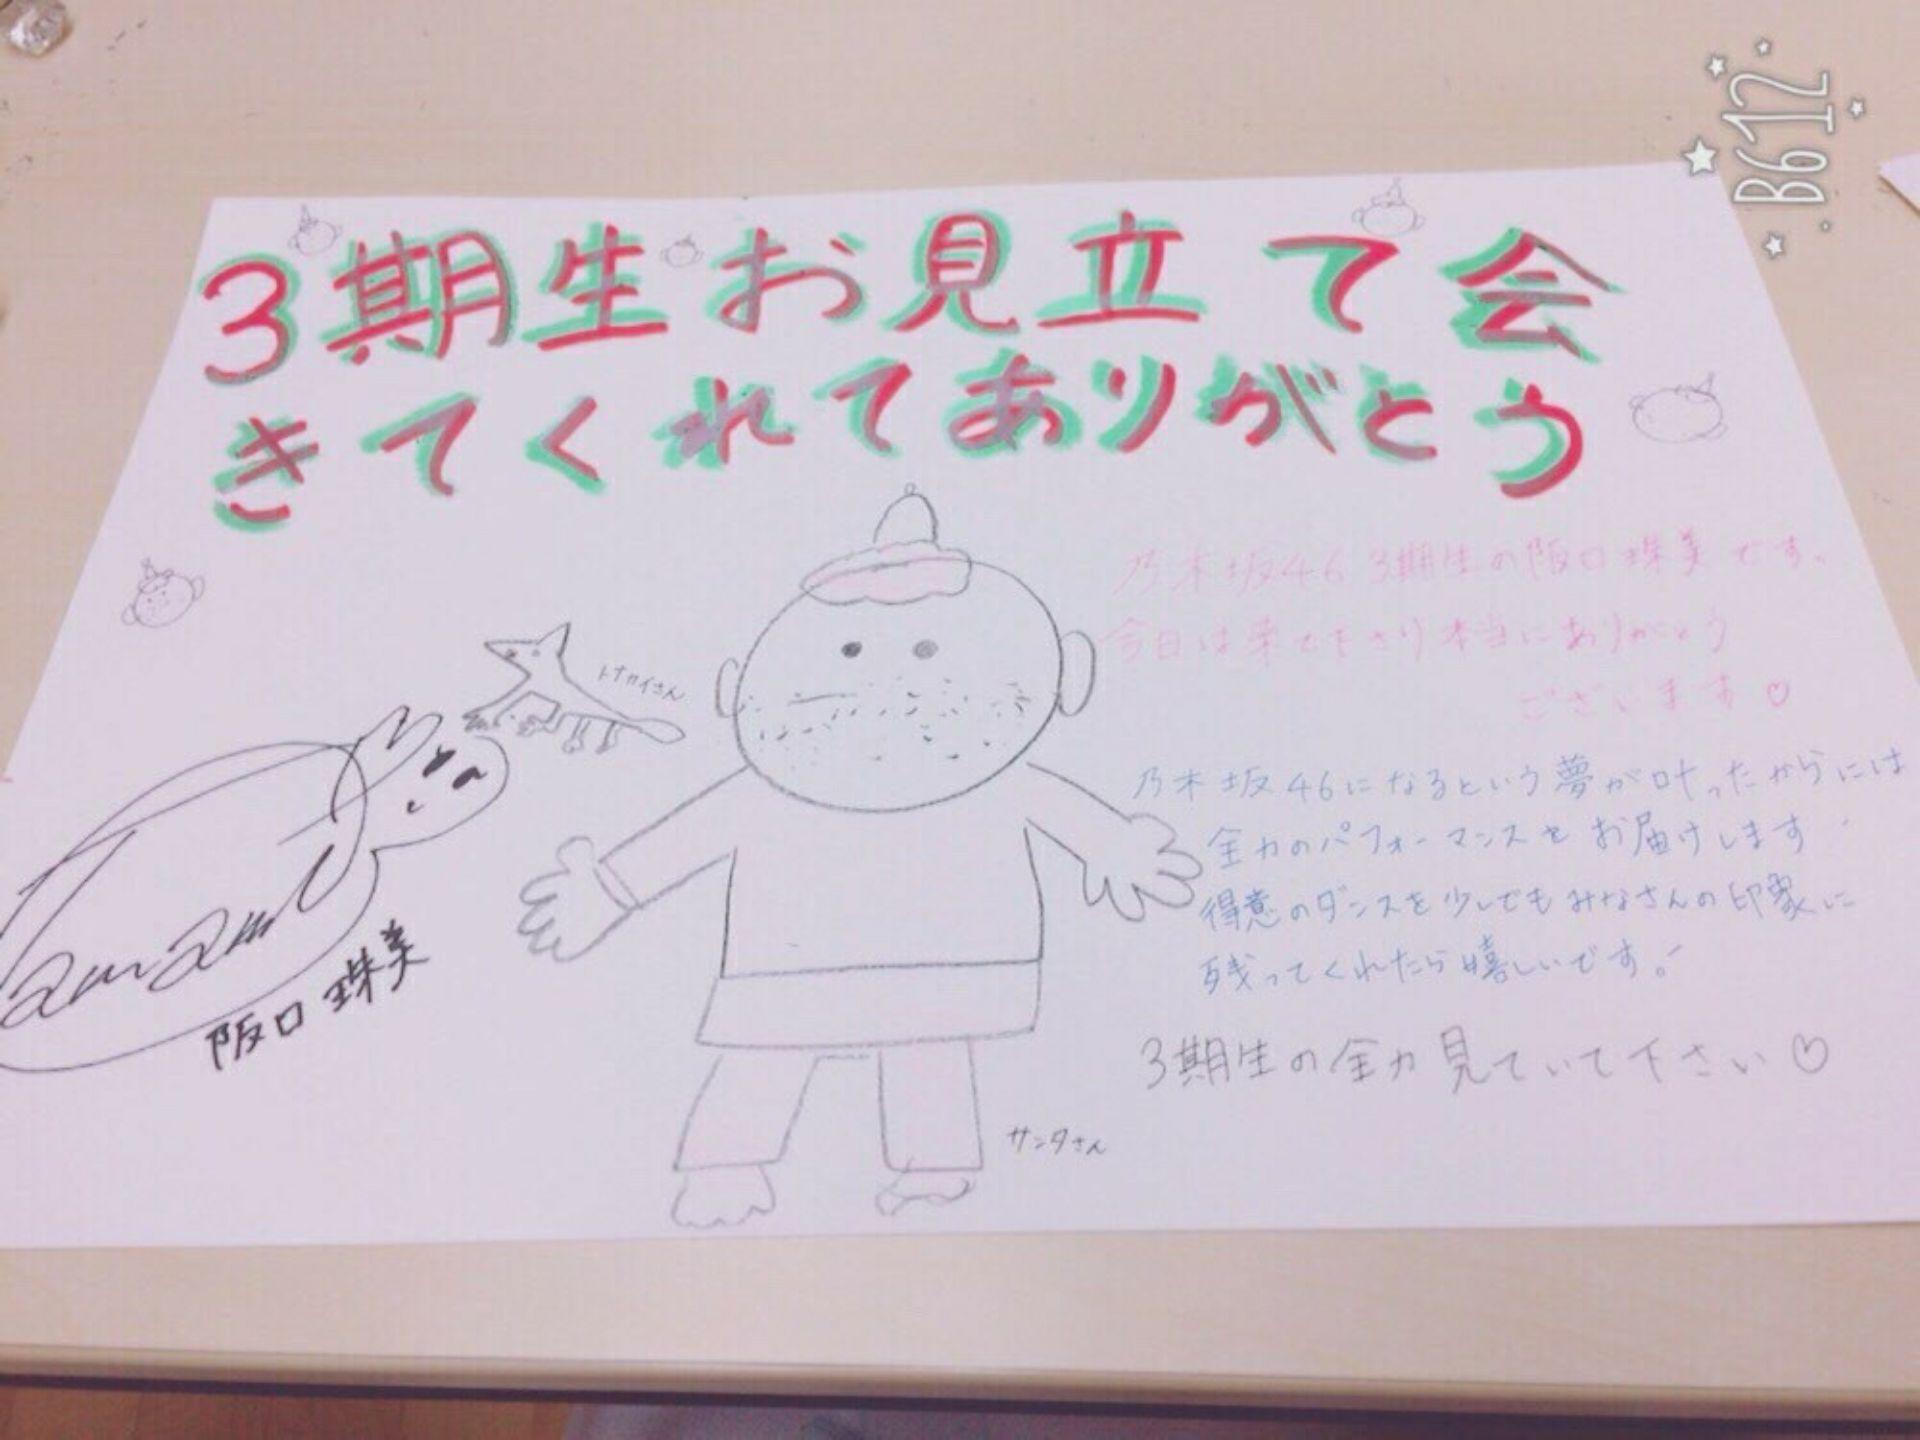 B612
3期生お見立て会
きてくれてありがとう
乃木坂46 3期生の阪口珠美です。
今日は来て下さり本当にありがとう
ございます♡
トナカイさん
乃木坂46になるという夢が叶ったからには
全力のパフォーマンスをお届けします
得意のダンスを少しでもみなさんの印象に
残ってくれたら嬉しいです。
阪口珠美
3期生の全力見ていて下さい♡
サンタさん